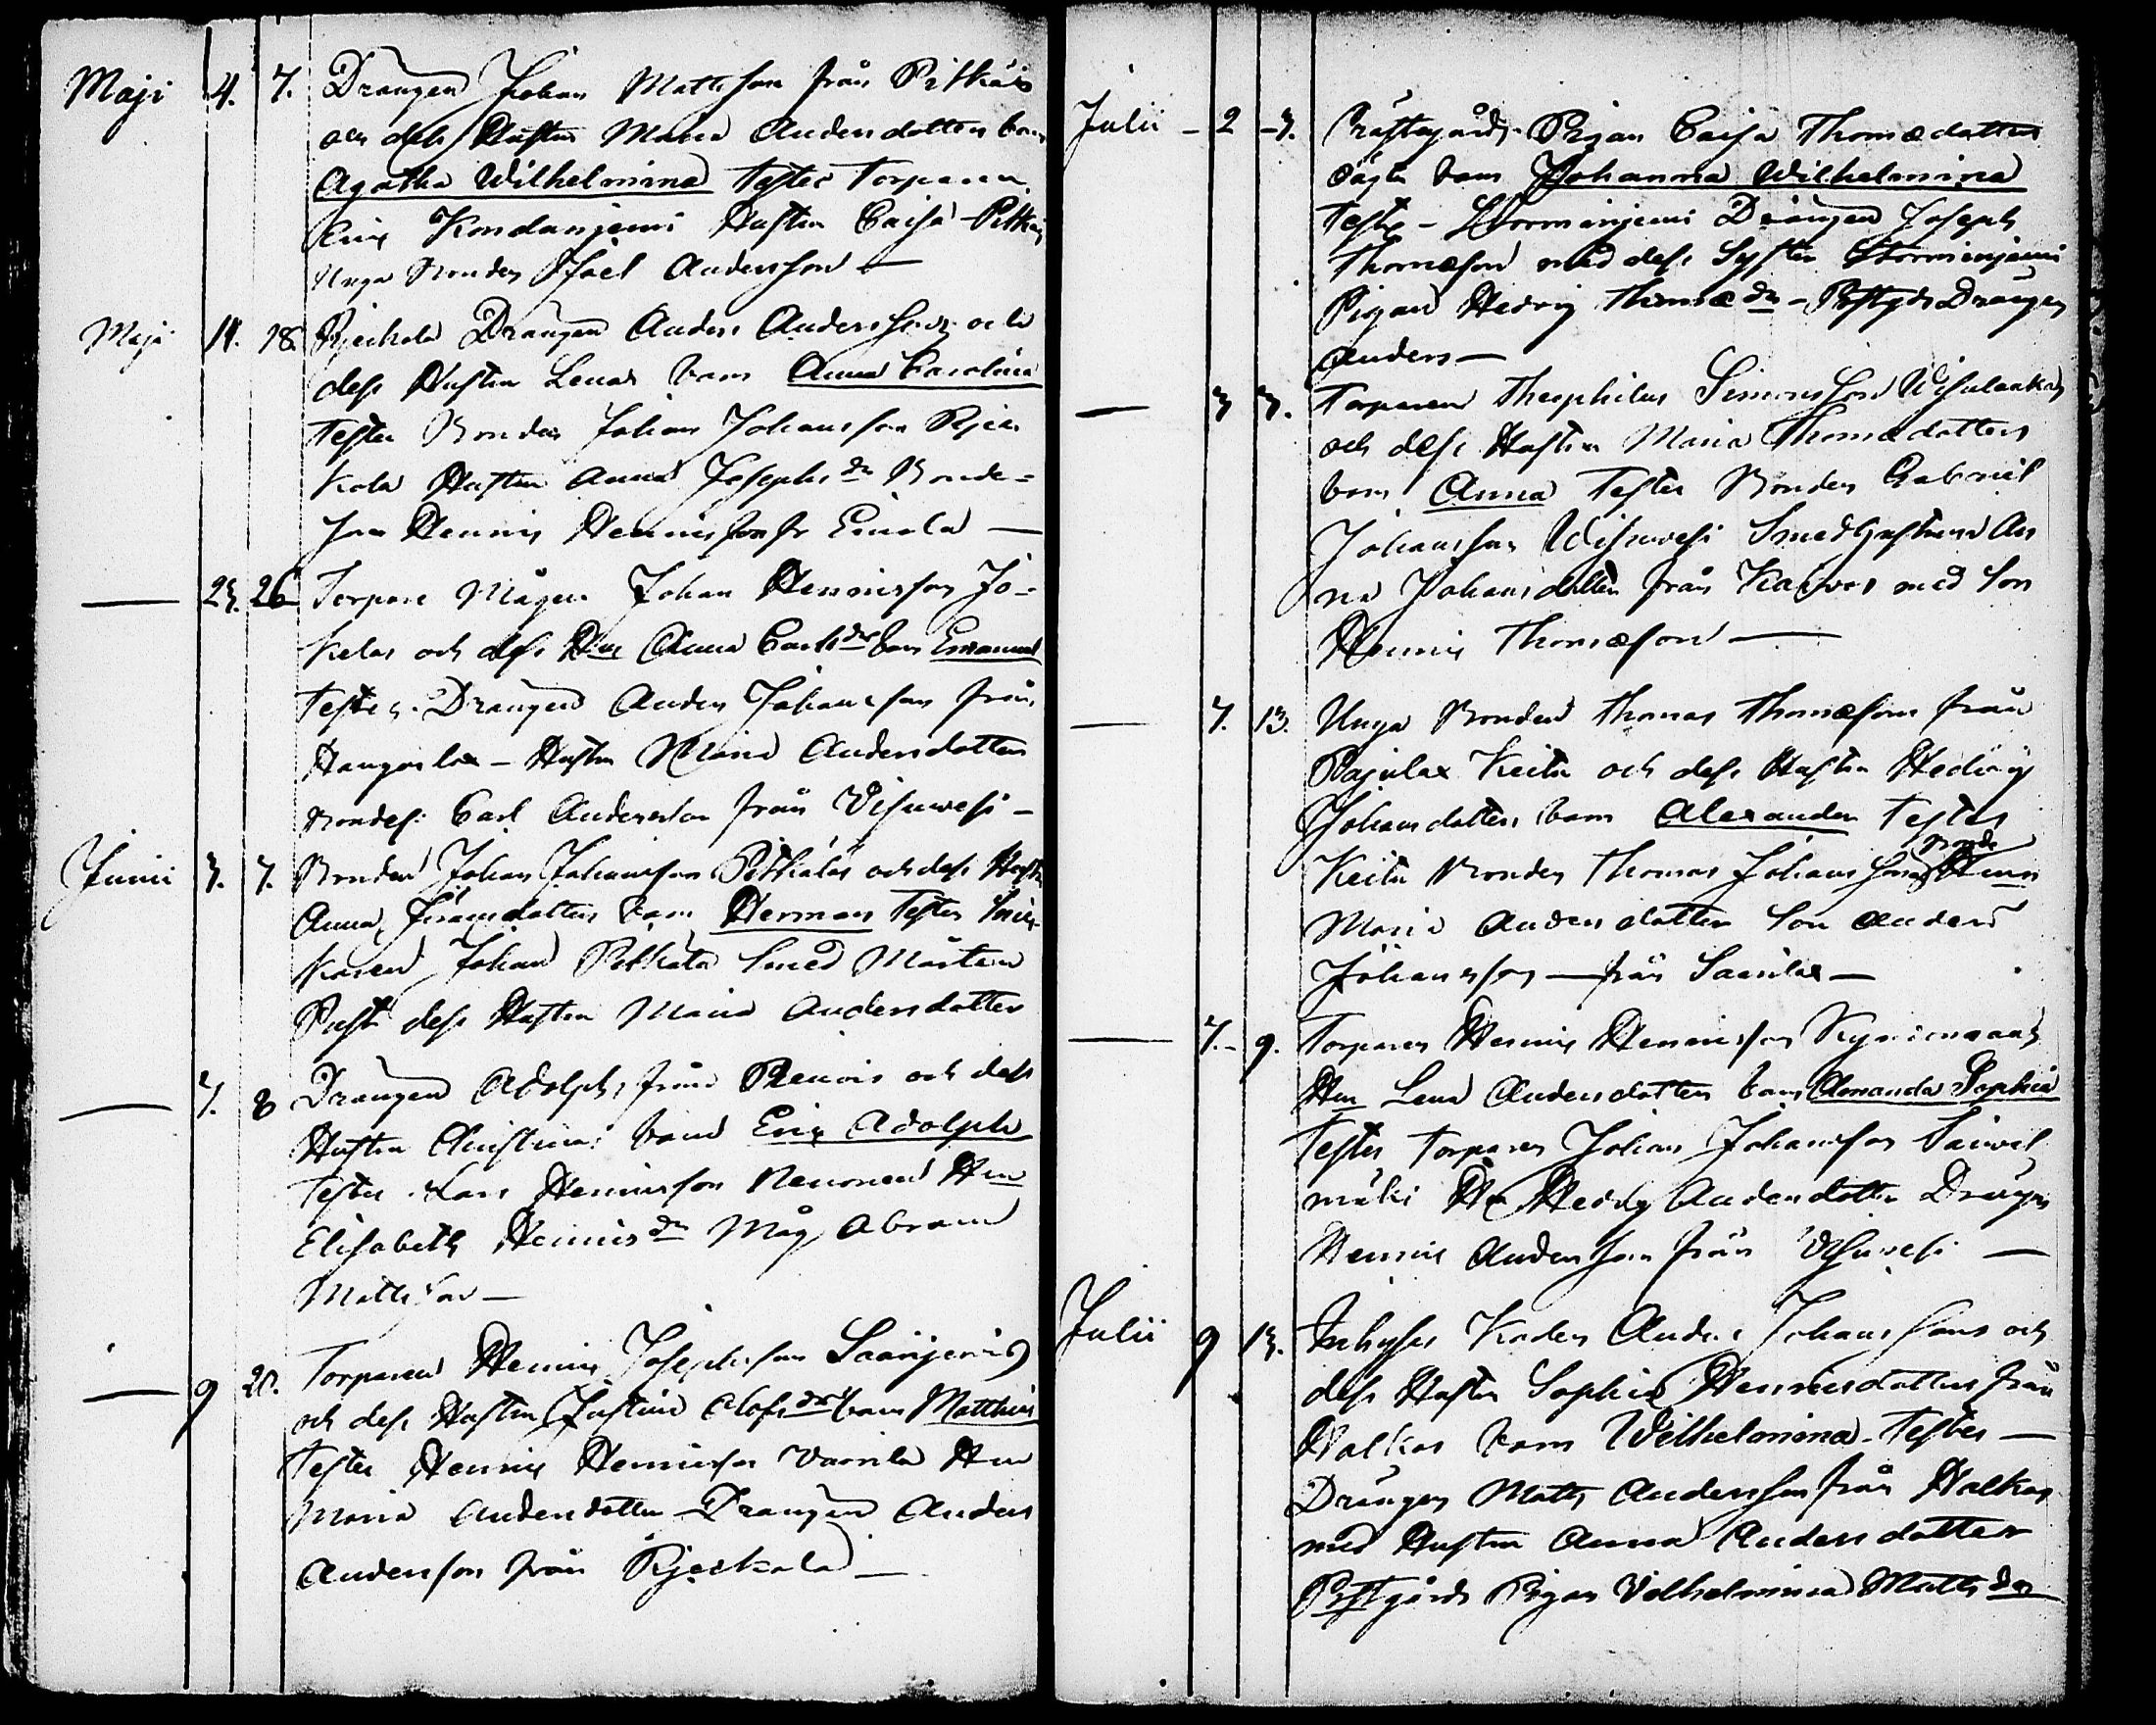 Maji 4. 7. Drängen Johan Mattsson från Pitkäis
och dess Hustru Maria Andersdotters barn
Agatha Wilhelmina Testes Torparen
Eric Kondanjemi Hustru Caisa Pitkäis
Unga Bonden Isac Andersson —
Maji 14. 18. Rjeckola Drängen Anders Andersson och
dess Hustru Lenas barn Anna Carolina
Testes Bonden Johan Johansson Rjec
kola Hustru Anna Josephs dr Bonde-
son Hennric Hennricsson fr Einola —
— 23. 26 Torpare Mågen Johan Hennricsson Jo-
kelas och dess Hu Anna Carls drs barn Emanuel
Testes. Drängen Anders Johansson från
Hangaslax – Hustru Maria Andersdotter
Bondes: Carl Andersson från Visuwesi –
Junii 3. 7. Bonden Johan Johansson Pitkälas och dess Hustru
Anna Simonsdotters barn Herman Testes
Johan Pelkola Smed Mårten
Pust dess Hustru Maria Andersdotter
— 7. 8 Drängen Adolph från Renois och dess
Hustru Christinas barn Eric Adolph
Testes Lars Hennricsson Neuonen Hu
Elisabeth Hennrics dr Måg Abram
Mattsson —
— 9 20. Torparen Hennric Josephsson Saarijervis
och dess Hustru Justina Olofs drs barn Matthias
Testes Hennric Hennricsson Hu
Maria Andersdotter – Drängen Anders
Andersson från Rjeckola —
Julii – 2 – 3. Prästegårds Pigan Caisa Thomædotters
oägta barn Johanna Wilhelmina
Testes – Storminjemi Drängen Joseph
Thomæson med dess Syster Storminjemi
Pigan Hedvig Thomæ dr – Prstgds Drängen
Anders —
— 3 3. Torparen Theophilus Simonsson Wisulanka
och dess Hustru Maria Thomædotters
barn Anna Testes Bonden Gabriel
Johansson Wisuwesi Smedhustrun An
na Johansdotter från Kaiwos med Son
Hennric Thomæson —
— 7. 13. Unga Bonden Thomas Thomæson från
Pajulax Keitu och dess Hustru Hedvig
Johansdotters barn Alexander Testes
Keitu Bonden Thomas Johansson Bonde Hun
Maria Andersdotter Son Anders
Johansson — från Saarilax —
— 7. – 9. Torparen Hennric Hennricsson
Hu Lena Andersdotters barn Amanda Sophia
Testes Torparen Johan Johansson
mäki Hu Hedvig Andersdotter Drängen
Hennric Andersson från Visuwesi —
Julii 9 13. Inhyses Karlen Anders Johansson och
dess Hustru Sophia Hennricsdotters från
Halkos barn Wilhelmina – Testes —
Drängen Matts Andersson från Halkos
med Hustru Anna Andersdotter
Prstgårds Pigan Vilhelmina Matts dr